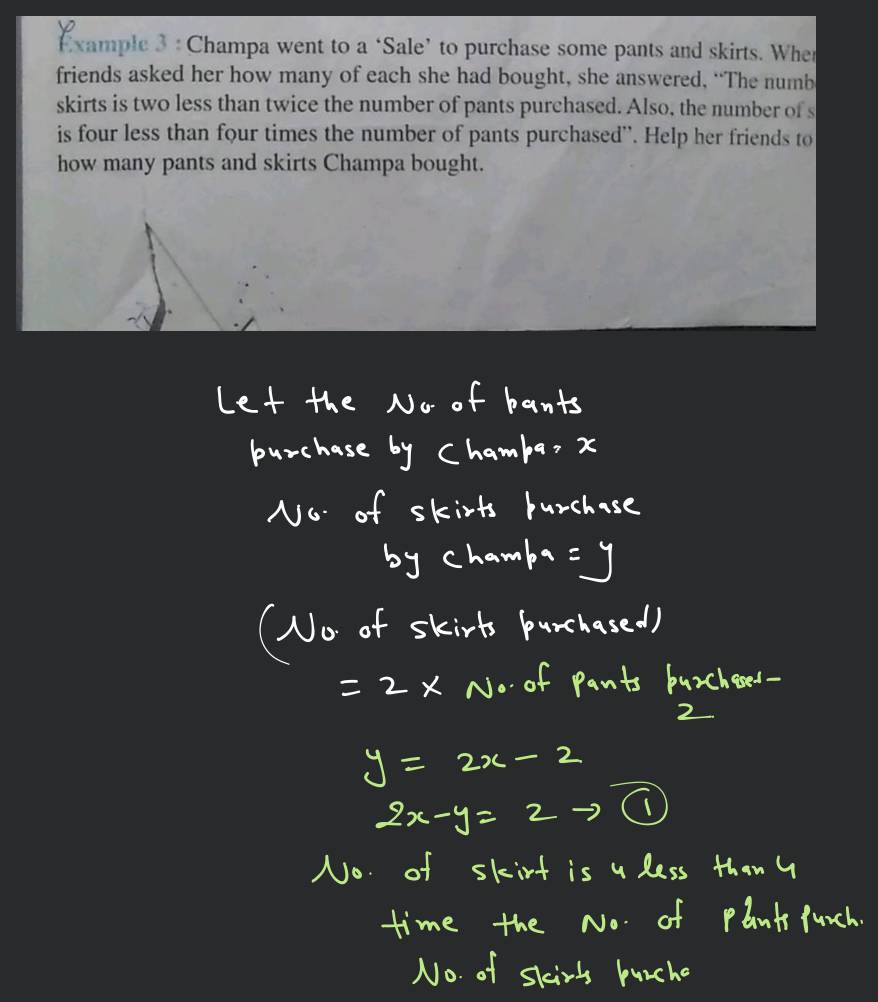 Example 3 : Champa went to a ‘Sale’ to purchase some pants and skirts. When
friends asked her how many of each she had bought, she answered, “The numb
skirts is two less than twice the number of pants purchased. Also, the number of s
is four less than four times the number of pants purchased”. Help her friends to
how many pants and skirts Champa bought.
Let the No of pants
purchase by Champa = x
No. of skirts purchase
by Champa = y
(No. of skirts purchased)
= 2 × No. of pants purchased -
2
y = 2x - 2
2x - y = 2 → ①
No. of skirt is 4 less than 4
time the No. of pants purch.
No. of skirts purcha